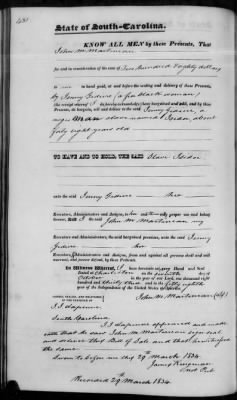 State of South-Carolina.
KNOW ALL MEN by these Presents, That
John M. Martineau
for and in consideration of the sum of Two hundred & eighty dollars
to me in hand paid, at and before the sealing and delivery of these Presents,
by Jenny (a free black woman)
the receipt whereof I do hereby acknowledge) have bargained and sold, and by these
Presents, do bargain, sell and deliver to the said Jenny a
negro man slave named about
forty eight years old
TO HAVE AND TO HOLD, THE SAID Slave
unto the said Jenny her
Executors, Administrators and Assigns, to and their only proper use and behoof
forever. And I the said John M. Martineau my
Executors and Administrators, the said bargained premises, unto the said Jenny
her
Executors, Administrators and Assigns, from and against all persons shall and will
warrant, and forever defend, by these Presents.
In Witness Whereof, I have hereunto set my Hand and Seal
Dated at Charleston on the day of
in the year of our Lord, one thousand eight
hundred and thirty three and in the fifty eighth
year of the Independence of the United States of America.
SIGNED, SEALED, AND DELIVERED
IN THE PRESENCE OF
John M. Martineau (LS)
South Carolina
appeared and made
oath that he saw John M. Martineau sign seal
and deliver this Bill of Sale and that he witnessed
the same.
Sworn to before me this 29th March 1834.
James
Not Pub
Recorded 29th March 1834.